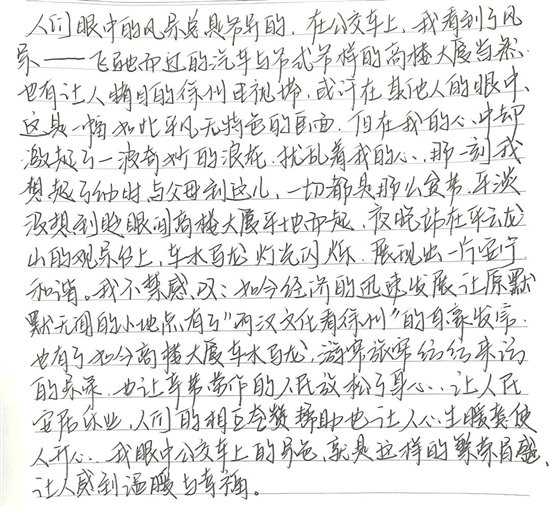 人们眼中的风景总是常异的，在公交车上，我看到了风
景——飞驰而过的汽车与各式各样的高楼大厦当然
也有让人瞩目的徐州电视塔，或许在其他人的眼中、
这是一幅如此平凡无特色的画面，但在我的心中却
激起了一波奇妙的浪花，扰乱着我的心、那一刻我
想起了幼时与父母到这儿，一切都是那么贫苦、平淡
没想到眨眼间高楼大厦平地而起，夜晚站在平云龙
山的观景台上，车水马龙灯光闪烁，展现出一片安宁
和谐。我不禁感叹：如今经济的迅速发展让原默
默无闻的小地点有了“两汉文化看徐州”的自豪发言
也有了如今高楼大厦车水马龙、游客旅客纷纷来访
的景象，也让辛苦劳作的人民放松了身心、让人民
安居乐业，人们的相互帮助也让人心生暖意使
人开心、我眼中公交车上的景色，就是这样的繁荣昌盛、
让人感到温暖与幸福。